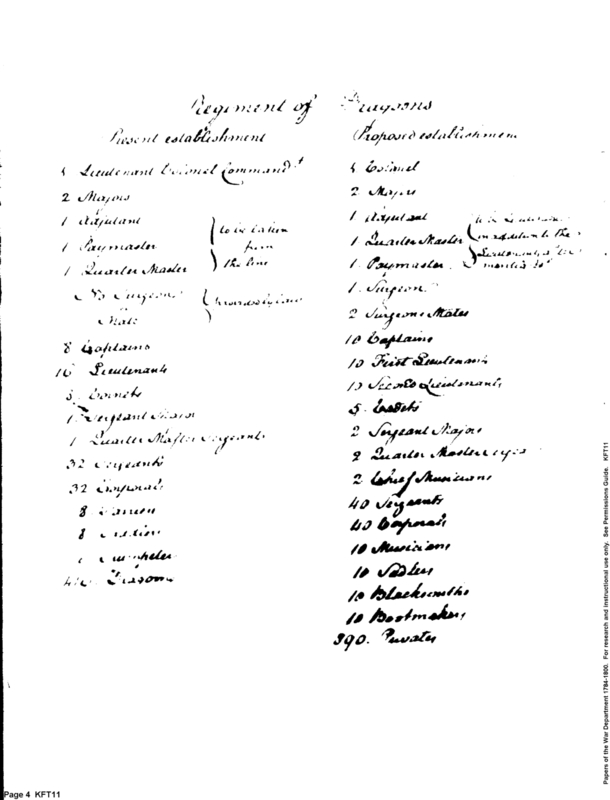 Regiment of Dragoons
Present establishment
Lieutenant Colonel Command.t
2 Majors
1 Adjutant
1 Paymaster
1 Quarter Master
to be taken
from
the line
No Surgeons
Mate
8 Captains
16 Lieutenants
Cornets
1 Sergeant Major
1 Quarter Master Sergeants
32 Sergeants
32 Corporals
8
8
Dragoons
Proposed establishment
Colonel
2 Majors
1 Adjutant
1 Quarter Master
1 Paymaster
in addition to the
Lieutenants
1 Surgeon
2 Surgeons Mates
10 Captains
10 First Lieutenants
10 Second Lieutenants
5 Cadets
2 Sergeant Majors
2 Quarter Master
2 Chief Musicians
40 Sergeants
40 Corporals
10 Musicians
10 Sadlers
10 Blacksmiths
10 Bootmakers
390. Privates
Page 4 KFT11
Papers of the War Department 1784-1800. For research and instructional use only. See Permissions Guide. KFT11